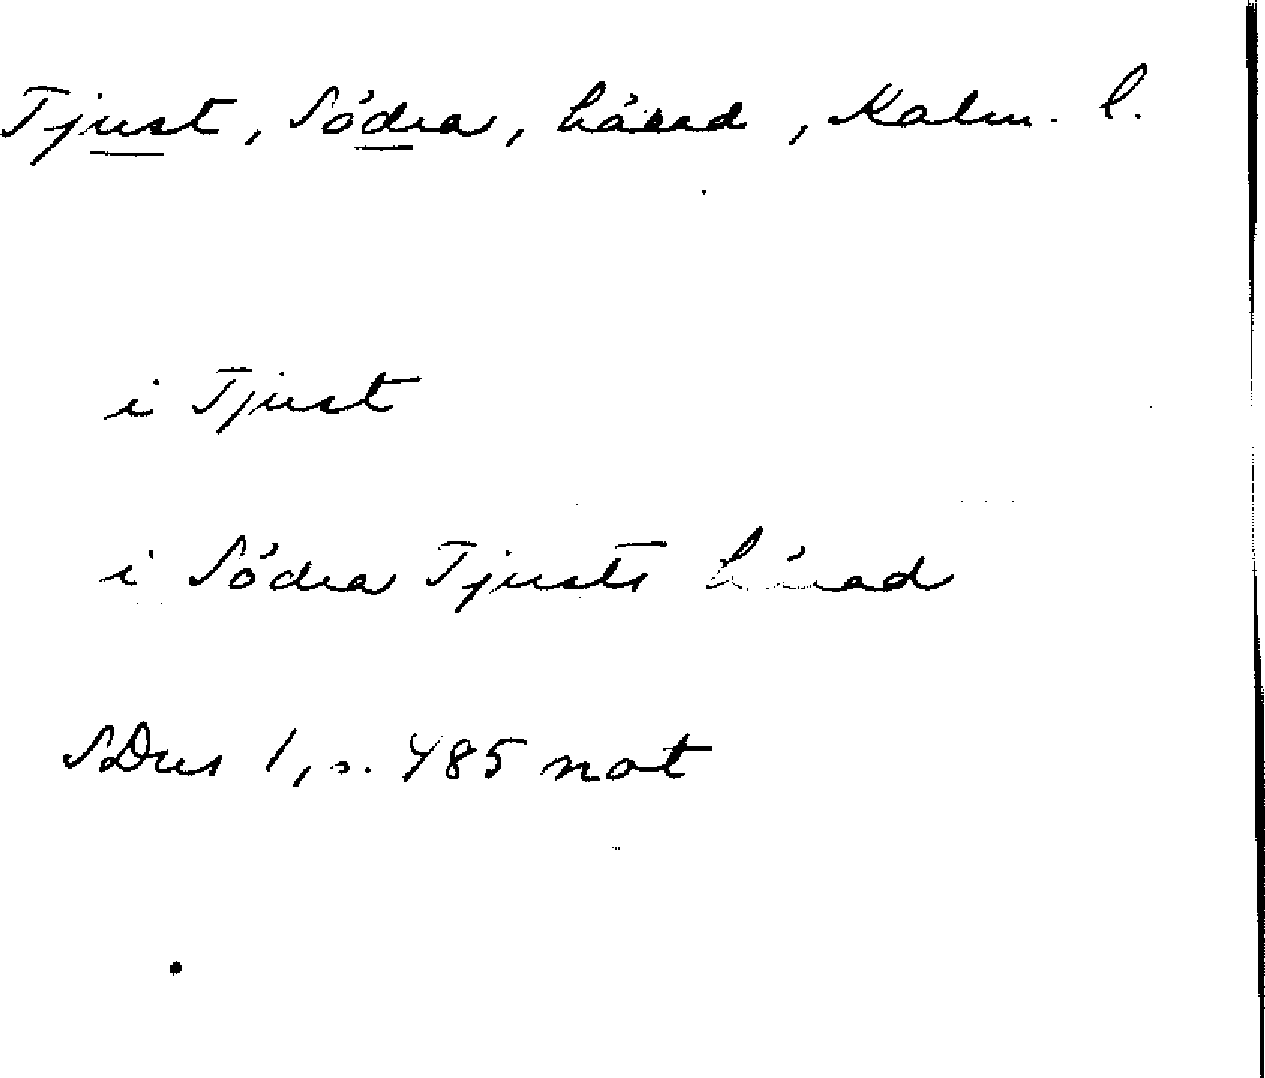 Tjust, Södra, härad, Kalm. l.
i Tjust
i Södra Tjusts härad
SDns 1, s. 485 not